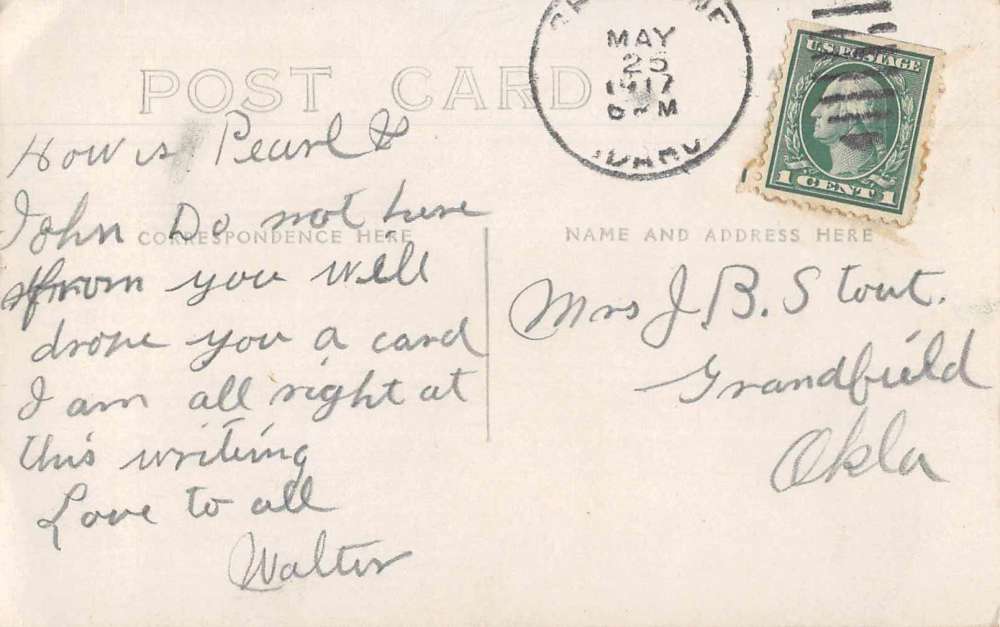 POST CARD
MAY
25
1917
M
IDAHO
U.S. POSTAGE
1 CENT 1
How is Pearl &
John Do not here
from you will
drope you a card
I am all right at
this writing
Love to all
Walter
CORRESPONDENCE HERE
NAME AND ADDRESS HERE
Mrs J. B. Stout.
Grandfield
Okla